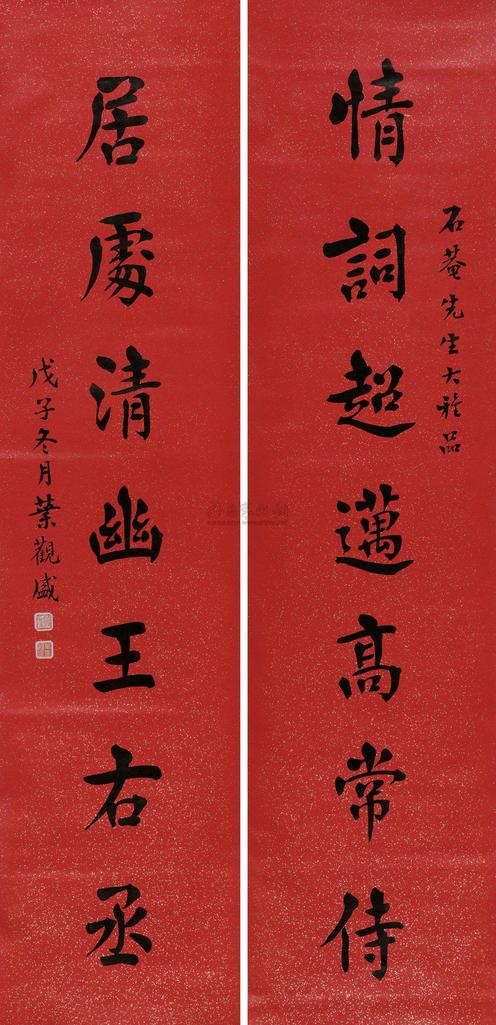 石菴先生大雅品
情詞超邁高常侍
居處清幽王右丞
戊子冬月葉觀盛